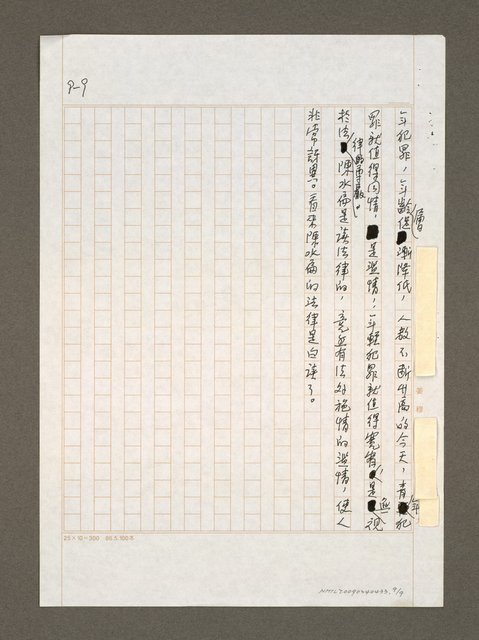 9-9
年犯罪，年齡層逐漸降低，人數不斷升高的今天，青年犯
罪就值得同情，是濫情，年輕犯罪就值得寬宥，是蔑視
於法律的尊嚴。陳水扁是讀法律的，竟然有法外施情的濫情，使人
非常訝異。看來陳水扁的法律是白讀了。
25×12=300
NMTL20090240433. 9/9